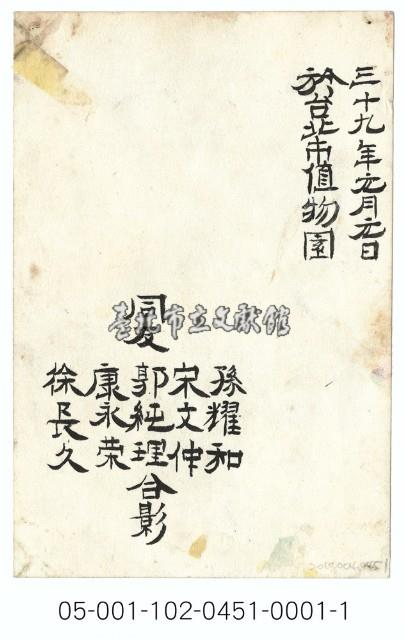 三十九年元月元日
於台北市值物園
孫耀和
宋文仲
同
郭純理合影
康永荣
徐長久
臺北市立文獻館
05-001-102-0451-0001-1